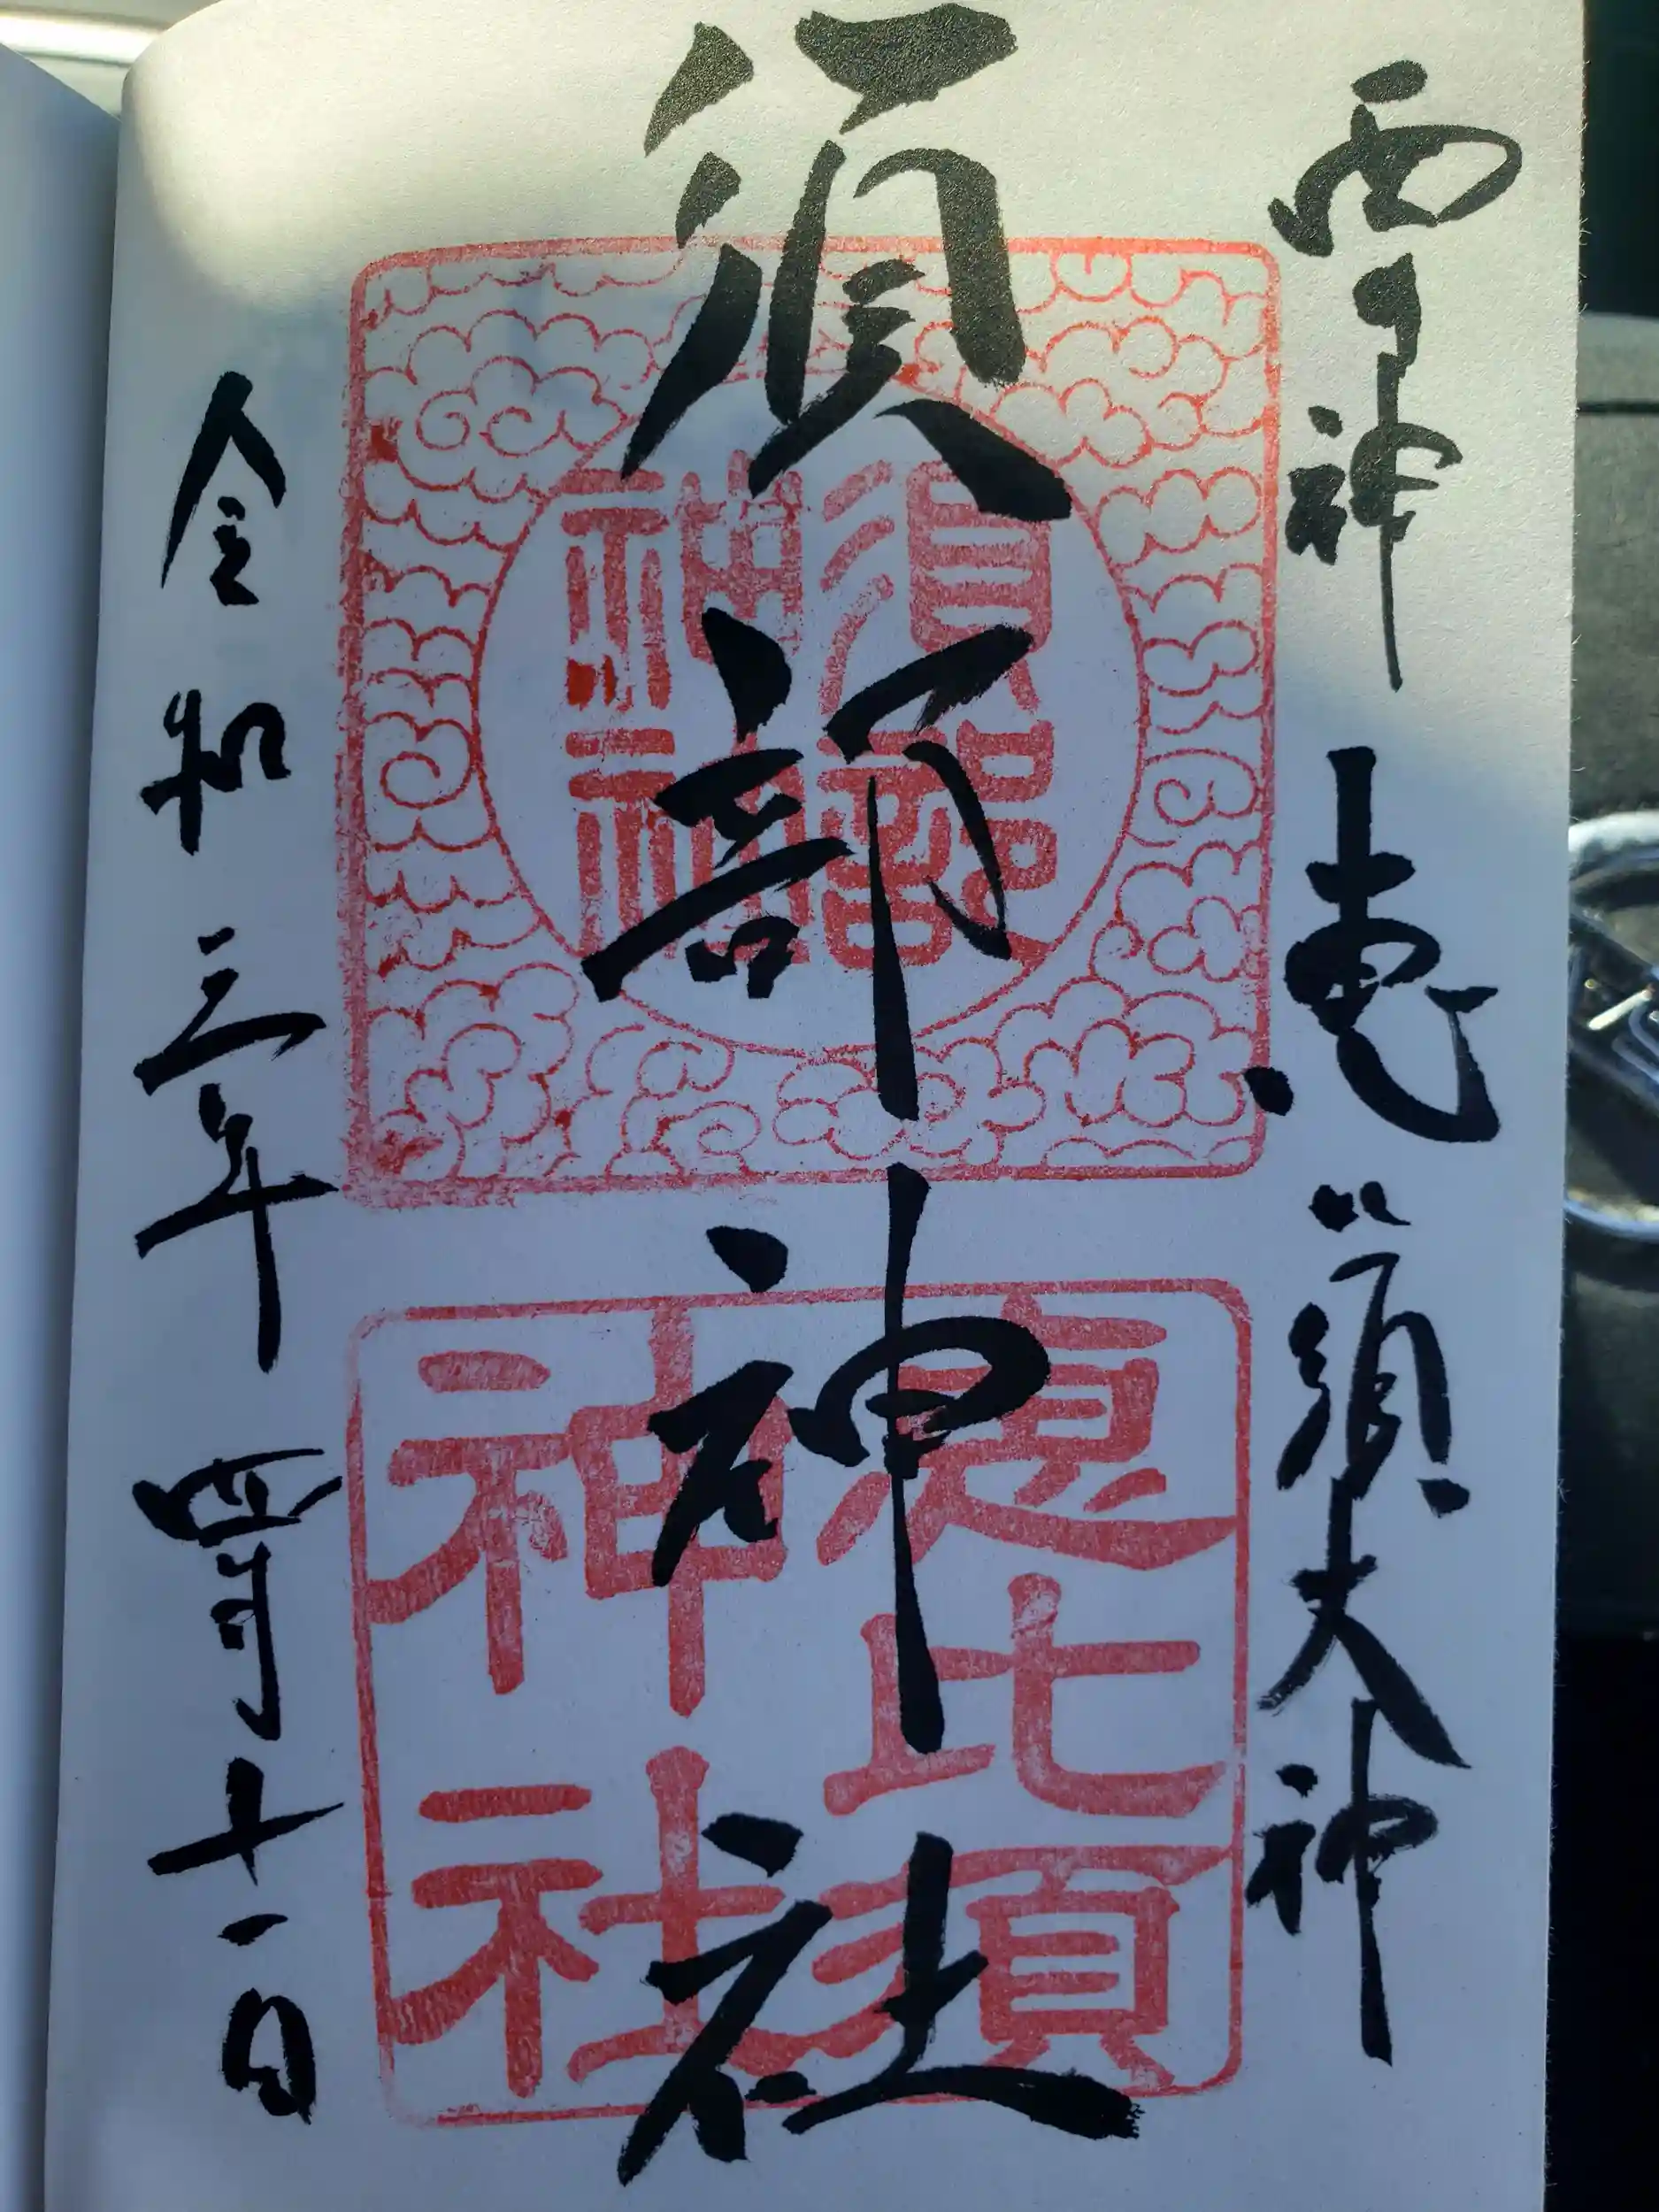 西 神 恵比須大神
須部神社
令和三年四月十一日
須部
神社
恵比須
神社